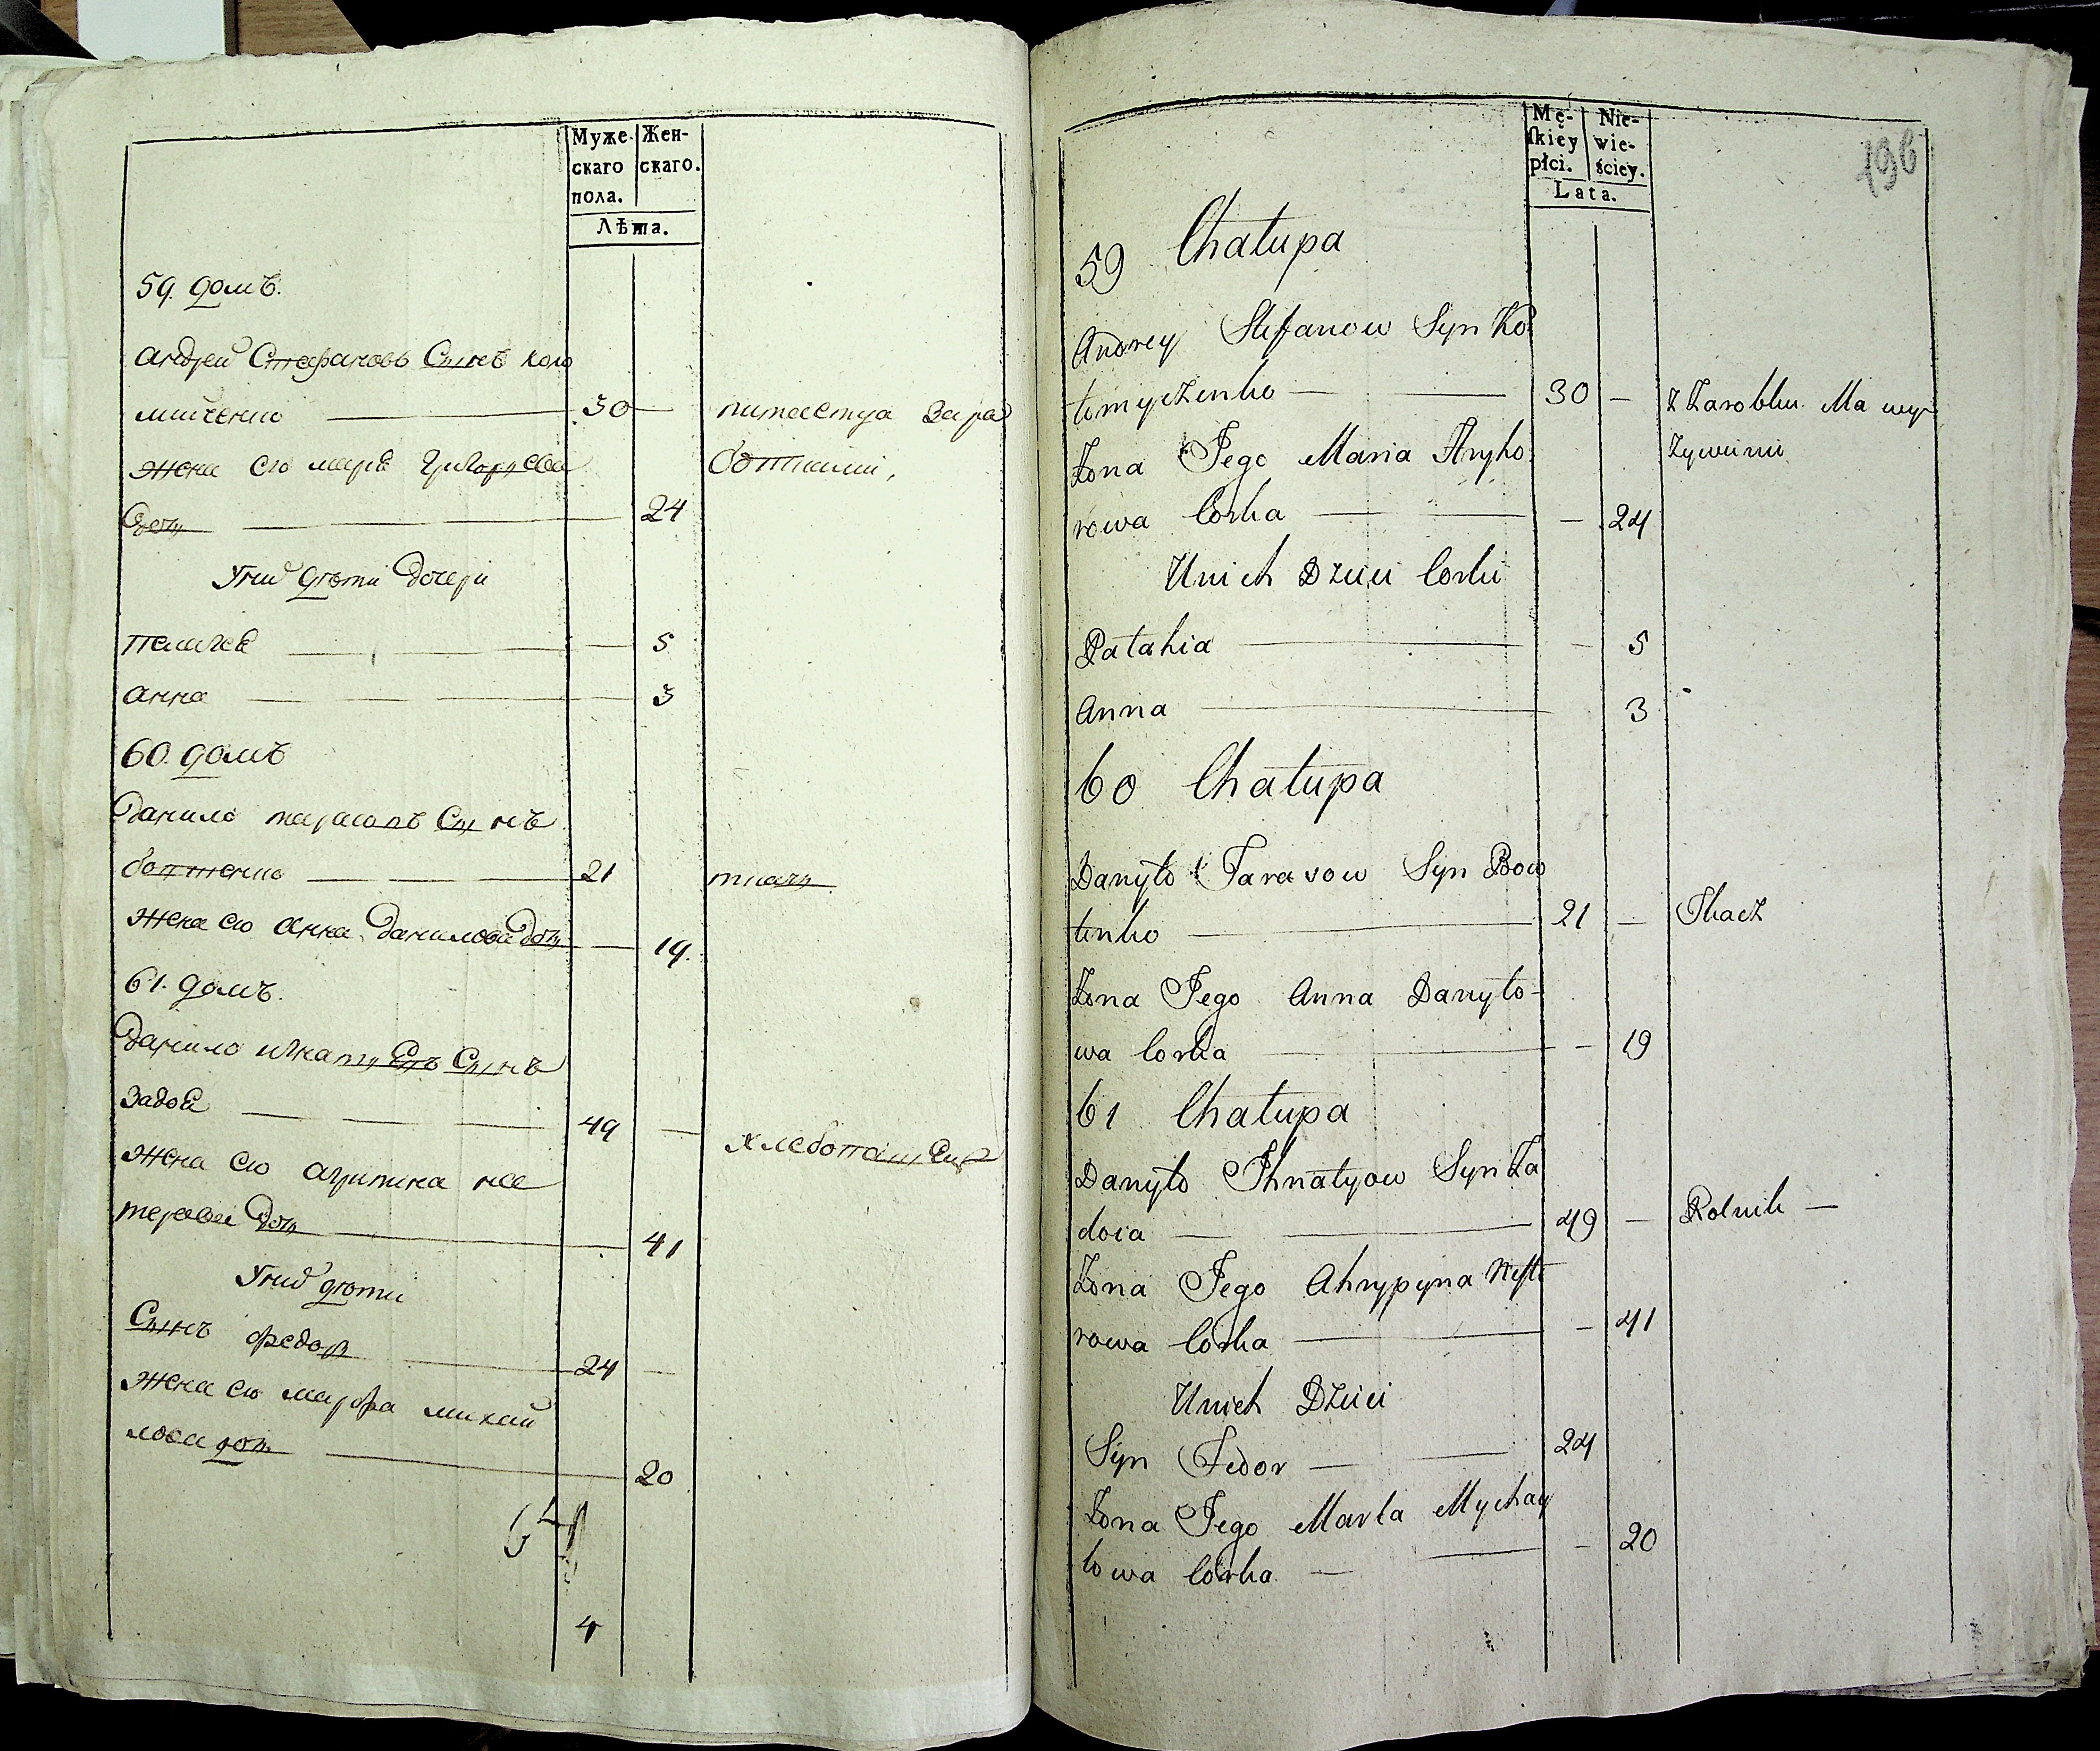 Муже-
скаго
пола.
Жен-
скаго.
Лѣта.
59. домъ.
андрей Стефановъ Сынъ коло
мийченко 30
питается Зара
ботками,
жена его мария Григориева
Дочь 24
У них дѣти дочери
Палагея 5
анна 3
60. домъ
Данило тарасовъ Сынъ
ботвенко 21
ткачъ
жена его анна Данилова дочь 19.
61. домъ.
Данило игнатиевъ Сынъ
Задоя 49
хлебопашецъ
жена его агрипина не
терова дочь 41
У них дѣти
Сынъ федор 24
жена его марфа михай
лова дочь 20
4
Mę-
ſkiey
płci.
Nie-
wie-
ściey.
Lata.
196
59 Chałupa
Andrey Stefanow Syn Ko
łomyczenko 30 –
z Zarobku Ma wy
żywieni
Żona Jego Maria Hryho
rowa Corka – 24
U nich Dzieci Corki
Pałahia – 5
Anna 3
60 Chałupa
Danyło Tarasow Syn Bow
tenko 21 – Tkacz
Żona Jego Anna Danyło-
wa Corka – 19
61 Chałupa
Danyło Ihnatyow Syn Za
doia 49 – Rolnik –
Żona Jego Ahrypyna Neste
rowa Corka – 41
U nich Dzieci
Syn Fedor 24
Żona Jego Marta Mychay
łowa Córka – 20